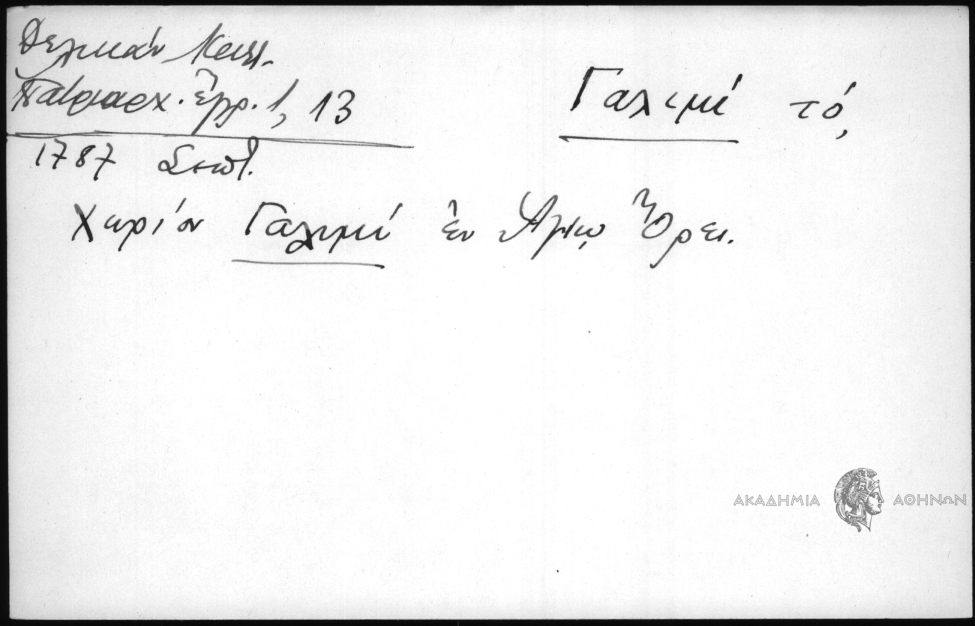 Δελικάν Καλλ.
Πατριαρχ. ἔγγρ. 1, 13
Γαλιμί τό,
1787 Σεπτ.
Χωρίον Γαλιμί ἐν Ἁγίῳ Ὄρει.
ΑΚΑΔΗΜΙΑ ΑΘΗΝΩΝ